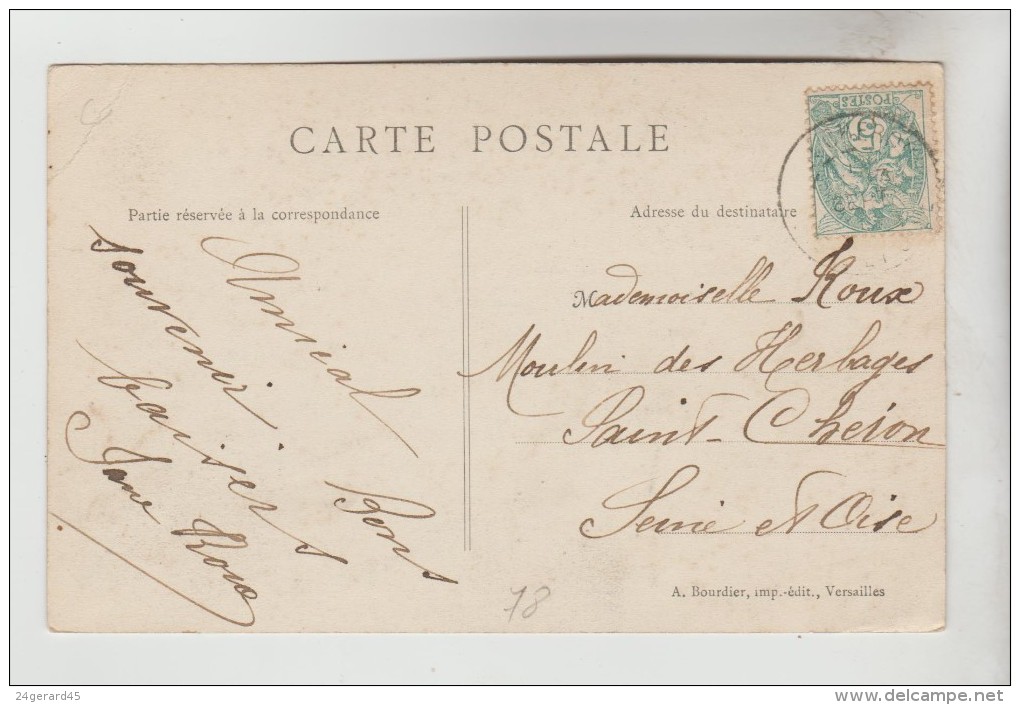 CARTE POSTALE
Partie réservée à la correspondance
Amical
souvenir
Bons
baisers
Jane Roux
Adresse du destinataire
POSTES
5
Mademoiselle Roux
Moulin des Herbages
Saint-Chéron
Seine et Oise
A. Bourdier, imp.-édit., Versailles
78
24gerard45
www.delcampe.net